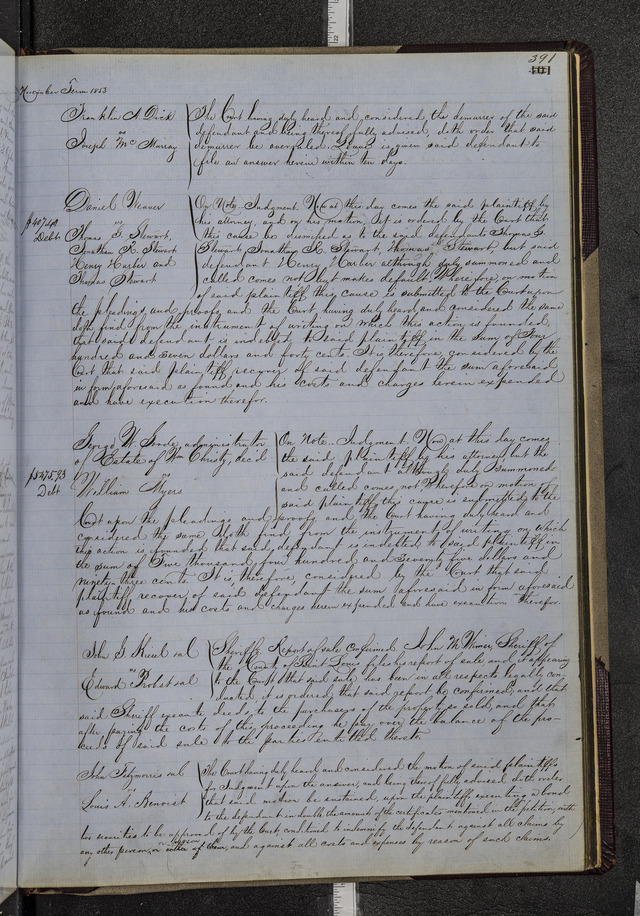 391
401
November Term 1853
Franklin A Dick
vs
Joseph Mc Murray
The Court having duly heard and considered the demurrer of the said
defendant and being thereof fully advised, doth order that said
demurrer be overruled. Leave is given said defendant to
file an answer herein within ten days.
Daniel Weaver
vs
$407.40
Debt.
Thomas G. Stewart,
Jonathan R. Stewart
Henry Harber and
Thomas Stewart
On Note. Judgment. Now at this day comes the said plaintiff by
his attorney, and on his motion, It is ordered by the Court that
this cause be dismissed as to the said defendants Thomas G.
Stewart, Jonathan R. Stewart, Thomas Stewart, but said
defendant Henry Harber although duly summoned and
called comes not but makes default. Wherefore, on motion
of said plaintiff this cause is submitted to the Court upon
the pleadings and proofs and the Court having duly heard and considered the same
doth find from the instrument of writing on which this action is founded,
that said defendant is indebted to said plaintiff in the sum of Four
hundred and seven dollars and forty cents. It is therefore, considered by the
Court that said plaintiff recover of said defendant the sum aforesaid
in form aforesaid as found and his costs and charges herein expended
and have execution therefor.
administrator
of Estate of Wm Christy, dec'd
vs
Debt
William Myers
On Note. Judgment. Now at this day comes
the said plaintiff by his attorney but the
said defendant although duly summoned
and called comes not. Wherefore on motion of
said plaintiff this cause is submitted to the
Court upon the pleadings and proofs and the Court having duly heard and
considered the same doth find from the instrument of writing on which
this action is founded that said defendant is indebted to said plaintiff in
the sum of thousand four hundred and seventy five dollars and
ninety three cents. It is, therefore considered by the Court that said
plaintiff recover of said defendant the sum aforesaid in form aforesaid
as found and his costs and charges herein expended and have execution therefor.
John G et al
vs
Edward Probst et al
Sheriffs Report of sale confirmed. John M Wimer, Sheriff of
the County of Saint Louis files his report of sale and it appearing
to the Court that said sale has been in all respects legally con-
ducted, it is ordered that said report be confirmed, and that
said Sheriff execute deeds to the purchasers of the property so sold, and that
after paying the costs of this proceeding he pay over the balance of the pro-
ceeds of said sale to the parties entitled thereto.
John Fitzmorris et al
vs
Louis A. Benoist
The Court having duly heard and considered the motion of said plaintiffs
for Judgment upon the answer, and being thereof fully advised doth order
that said motion be sustained, upon the plaintiffs executing a bond
to the defendant in double the amount of the certificates mentioned in the petition, with
two securities to be approved of by the Court, conditioned to indemnify the defendant against all claims by
any other person, or either of them, and against all costs and expenses by reason of such claims.